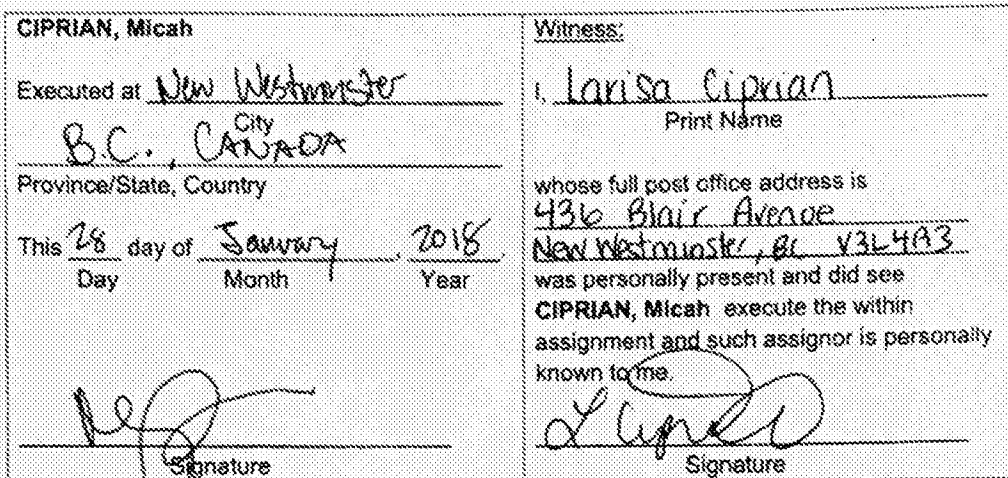 CIPRIAN, Micah
Executed at New Westminster
City
B.C., CANADA
Province/State, Country
This 28 day of January, 2018
Day Month Year
Signature
Witness:
I, Larisa Ciprian
Print Name
whose full post office address is
436 Blair Avenue
New Westminster, BC V3L4A3
was personally present and did see
CIPRIAN, Micah execute the within
assignment and such assignor is personally
known to me.
Signature